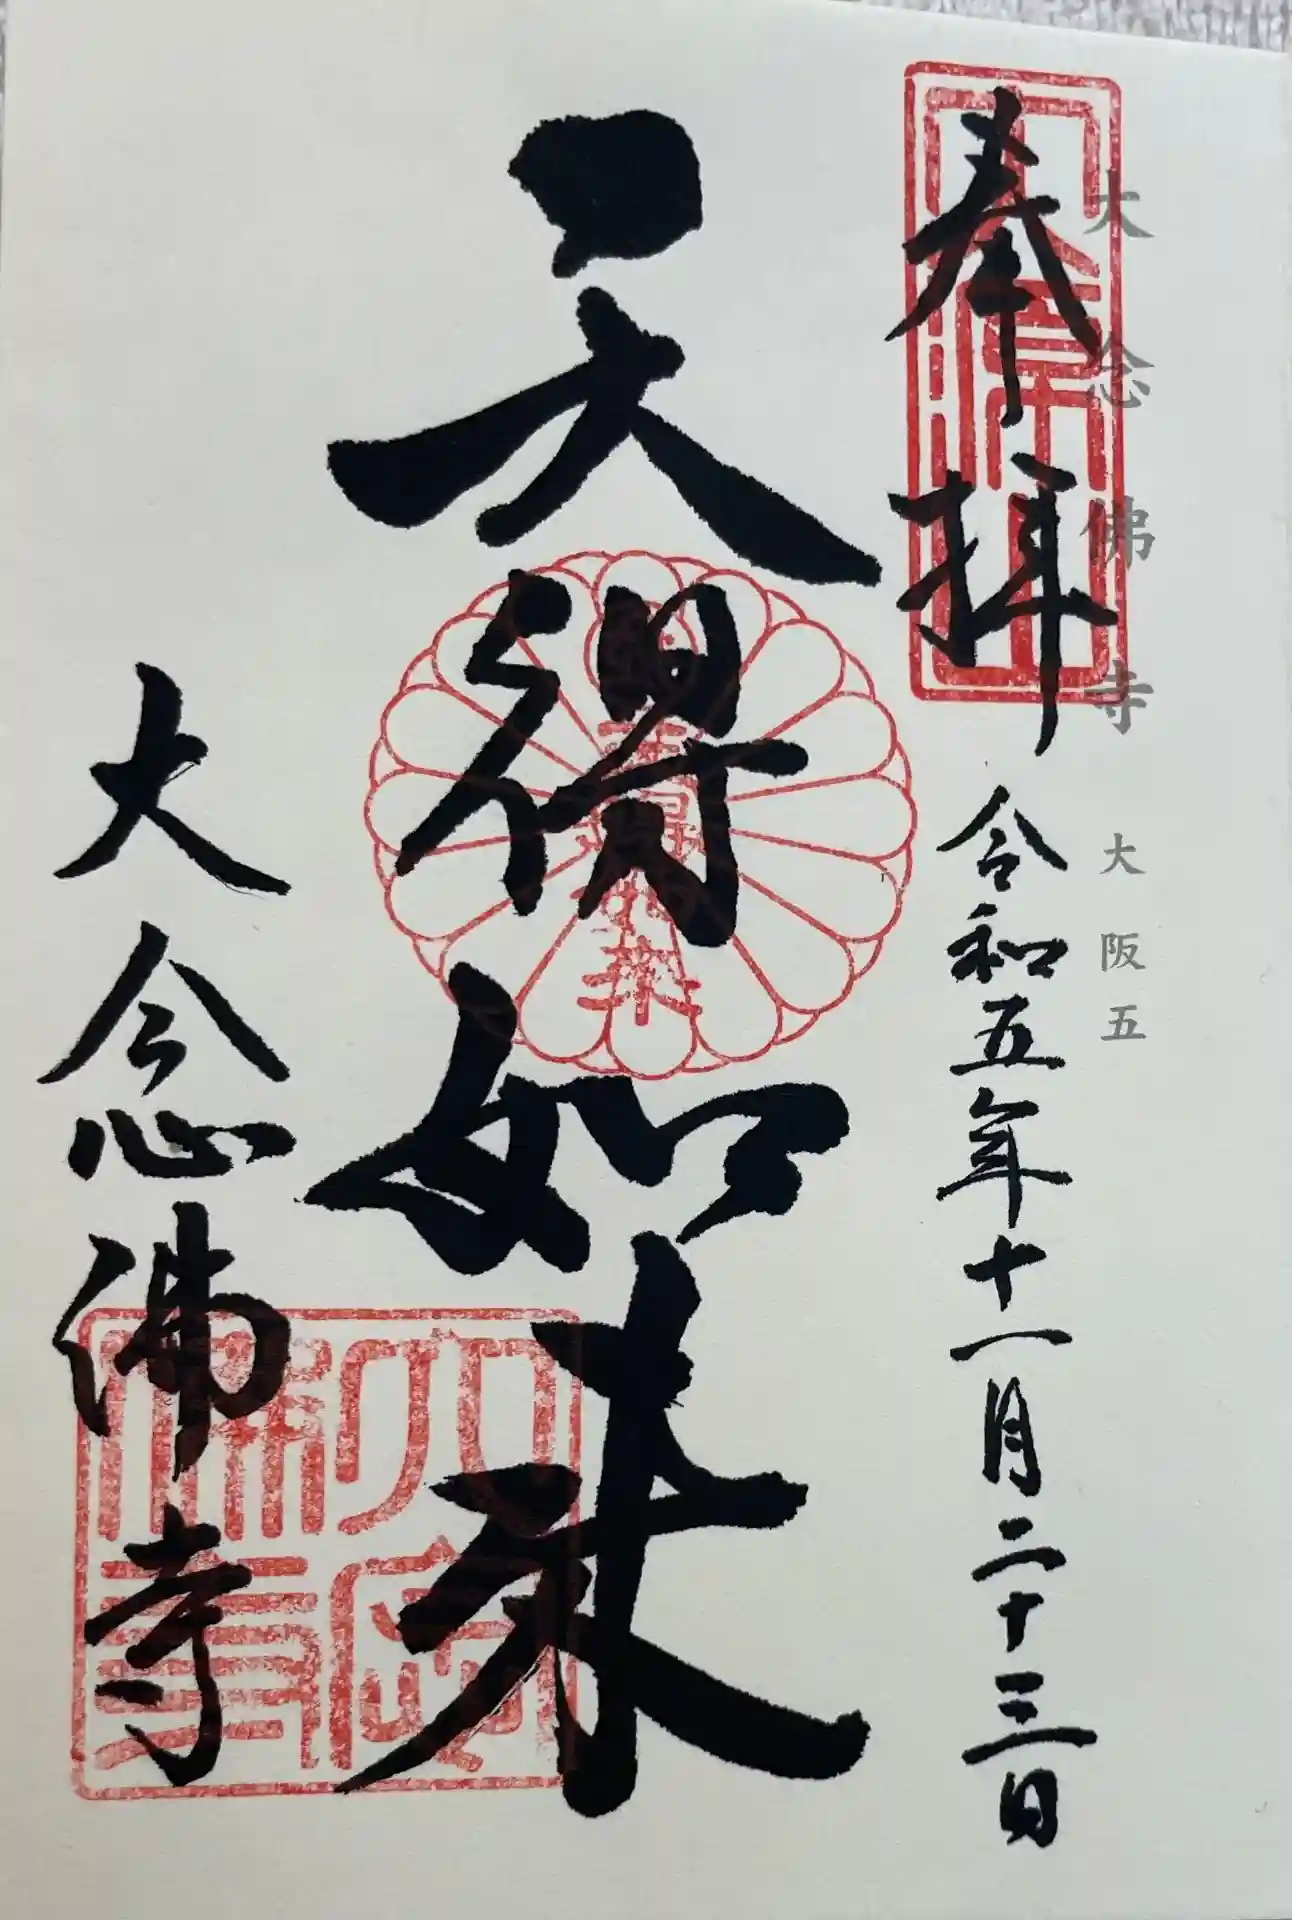 大念佛寺
大阪五
奉拝
令和五年十一月二十三日
天得如来
大念佛寺